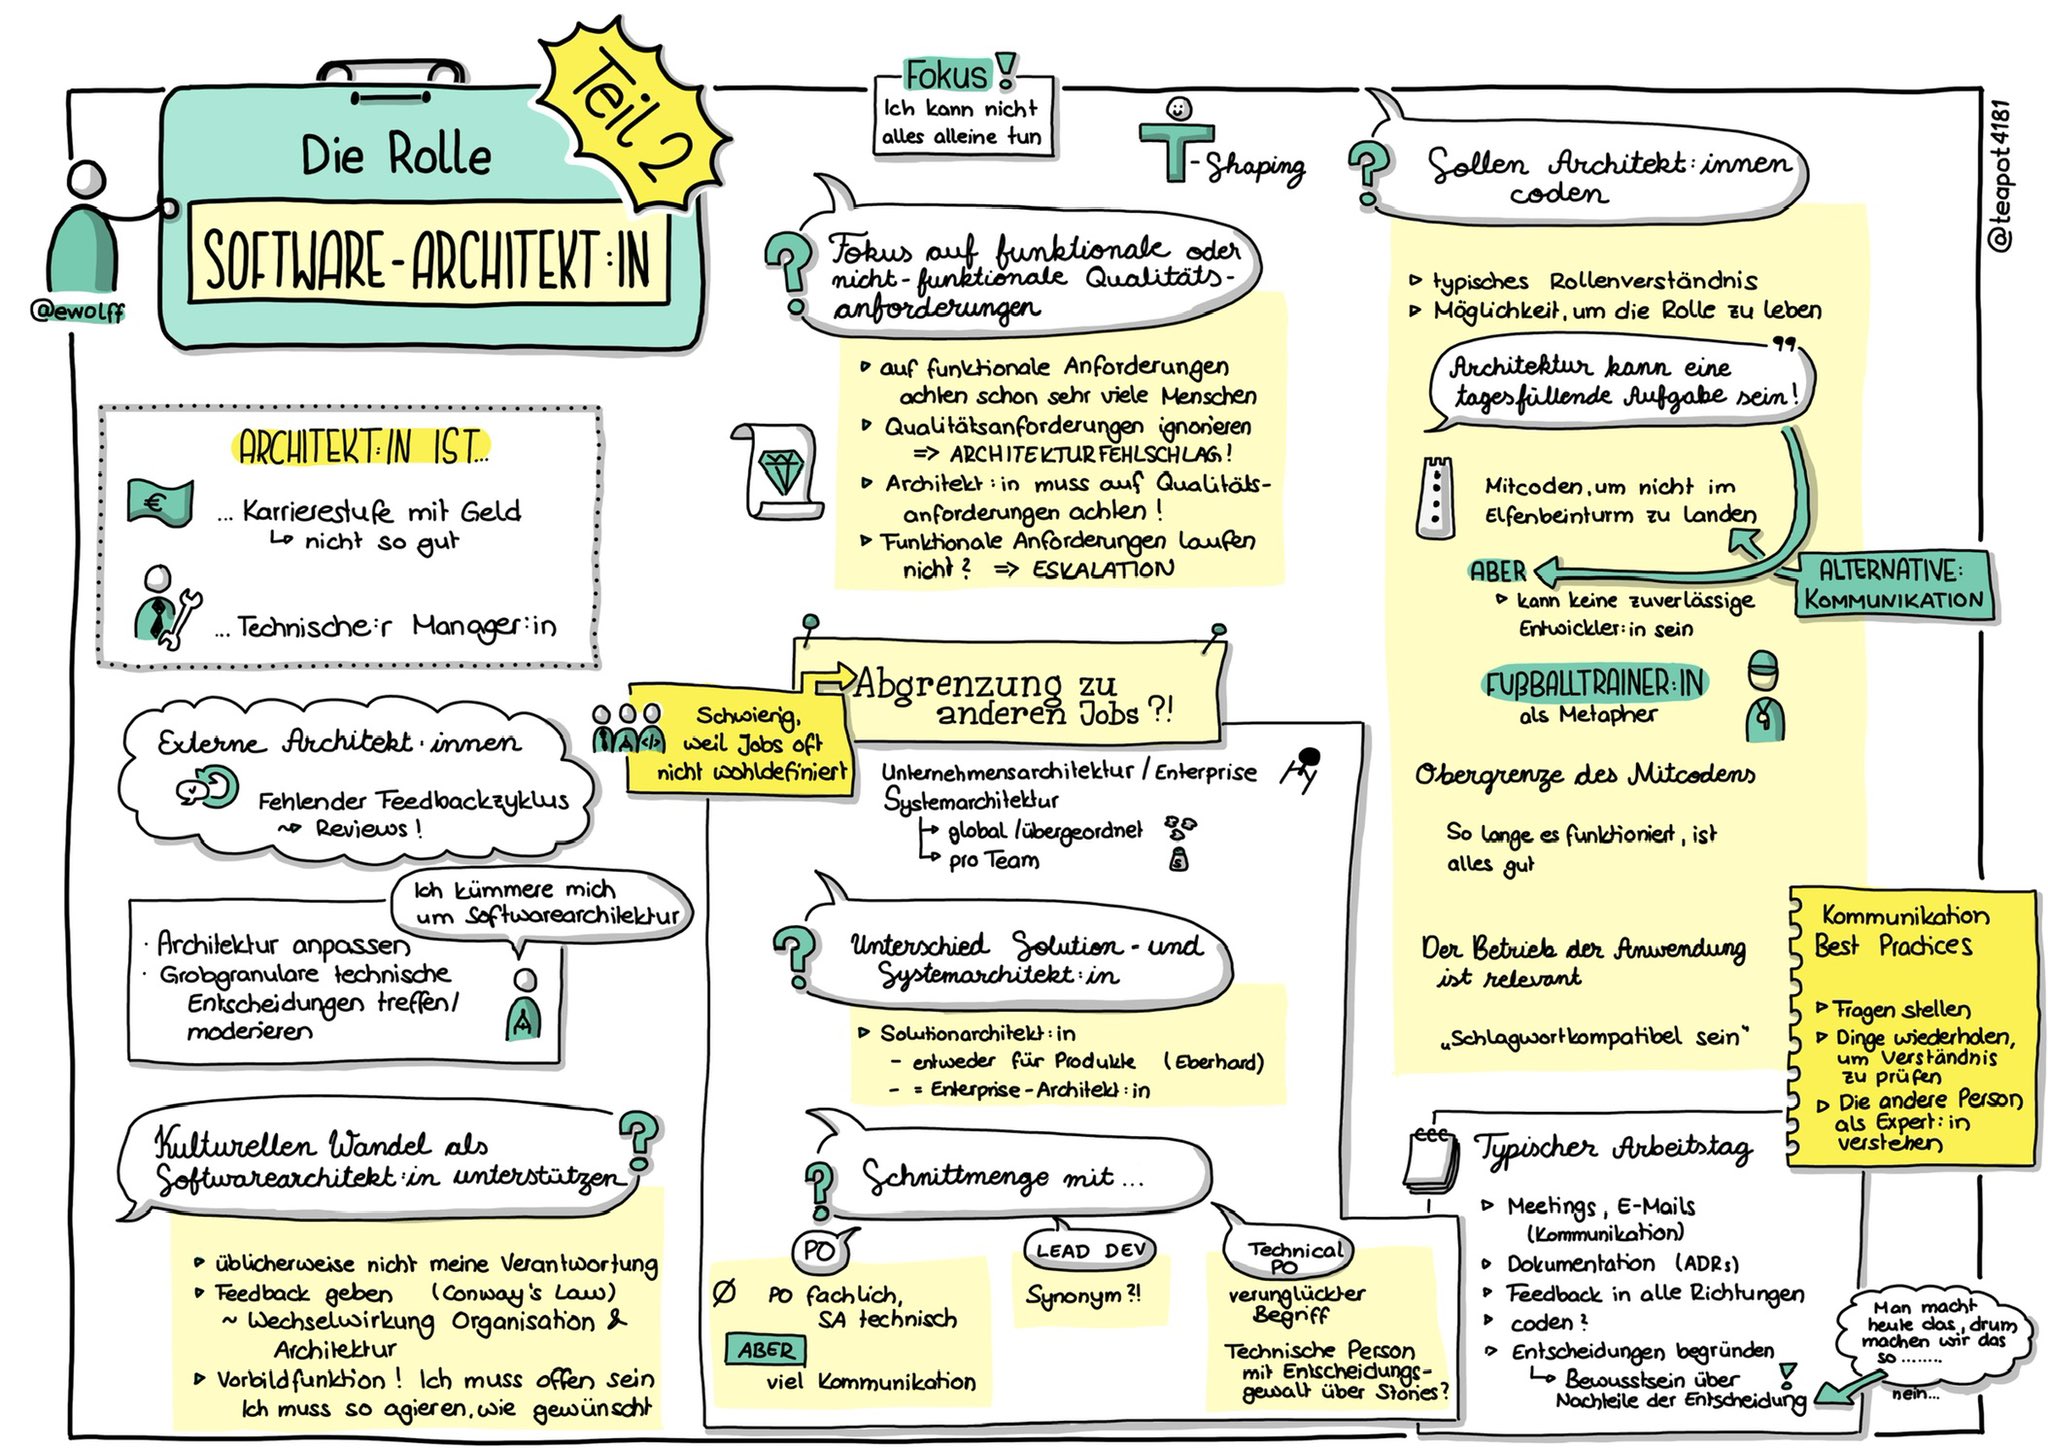 Die Rolle
SOFTWARE-ARCHITEKT:IN
Teil 2
@ewolff
Fokus!
Ich kann nicht
alles alleine tun
T-Shaping
@teapot4181
ARCHITEKT:IN IST...
€
... Karrierestufe mit Geld
↳ nicht so gut
... Technische:r Manager:in
Externe Architekt:innen
Fehlender Feedbackzyklus
~> Reviews!
Ich kümmere mich
um Softwarearchitektur
· Architektur anpassen
· Grobgranulare technische
Entscheidungen treffen/
moderieren
Kulturellen Wandel als
Softwarearchitekt:in unterstützen
?
▹ üblicherweise nicht meine Verantwortung
▹ Feedback geben (Conway's Law)
~ Wechselwirkung Organisation &
Architektur
▹ Vorbildfunktion! Ich muss offen sein
Ich muss so agieren, wie gewünscht
?
Fokus auf funktionale oder
nicht-funktionale Qualitäts-
anforderungen
▹ auf funktionale Anforderungen
achten schon sehr viele Menschen
▹ Qualitätsanforderungen ignorieren
=> ARCHITEKTURFEHLSCHLAG!
▹ Architekt:in muss auf Qualitäts-
anforderungen achten!
▹ Funktionale Anforderungen laufen
nicht? => ESKALATION
Schwierig,
weil Jobs oft
nicht wohldefiniert
</>
Abgrenzung zu
anderen Jobs?!
Unternehmensarchitektur / Enterprise
Systemarchitektur
↳ global/übergeordnet
↳ pro Team
?
Unterschied Solution- und
Systemarchitekt:in
▹ Solutionarchitekt:in
- entweder für Produkte (Eberhard)
- = Enterprise-Architekt:in
?
Schnittmenge mit ...
PO
Ø PO fachlich,
SA technisch
ABER
viel Kommunikation
LEAD DEV
Synonym?!
Technical
PO
verunglückter
Begriff
Technische Person
mit Entscheidungs-
gewalt über Stories?
?
Sollen Architekt:innen
coden
▹ typisches Rollenverständnis
▹ Möglichkeit, um die Rolle zu leben
Architektur kann eine
tagesfüllende Aufgabe sein!
Mitcoden, um nicht im
Elfenbeinturm zu landen
ABER
▹ kann keine zuverlässige
Entwickler:in sein
ALTERNATIVE:
KOMMUNIKATION
FUßBALLTRAINER:IN
als Metapher
Obergrenze des Mitcodens
So lange es funktioniert, ist
alles gut
Der Betrieb der Anwendung
ist relevant
„Schlagwortkompatibel sein"
Kommunikation
Best Practices
▹ Fragen stellen
▹ Dinge wiederholen,
um Verständnis
zu prüfen
▹ Die andere Person
als Expert:in
verstehen
Typischer Arbeitstag
▹ Meetings, E-Mails
(Kommunikation)
▹ Dokumentation (ADRs)
▹ Feedback in alle Richtungen
▹ coden?
▹ Entscheidungen begründen
↳ Bewusstsein über
Nachteile der Entscheidung
!
Man macht
heute das, drum
machen wir das
so ........
nein...